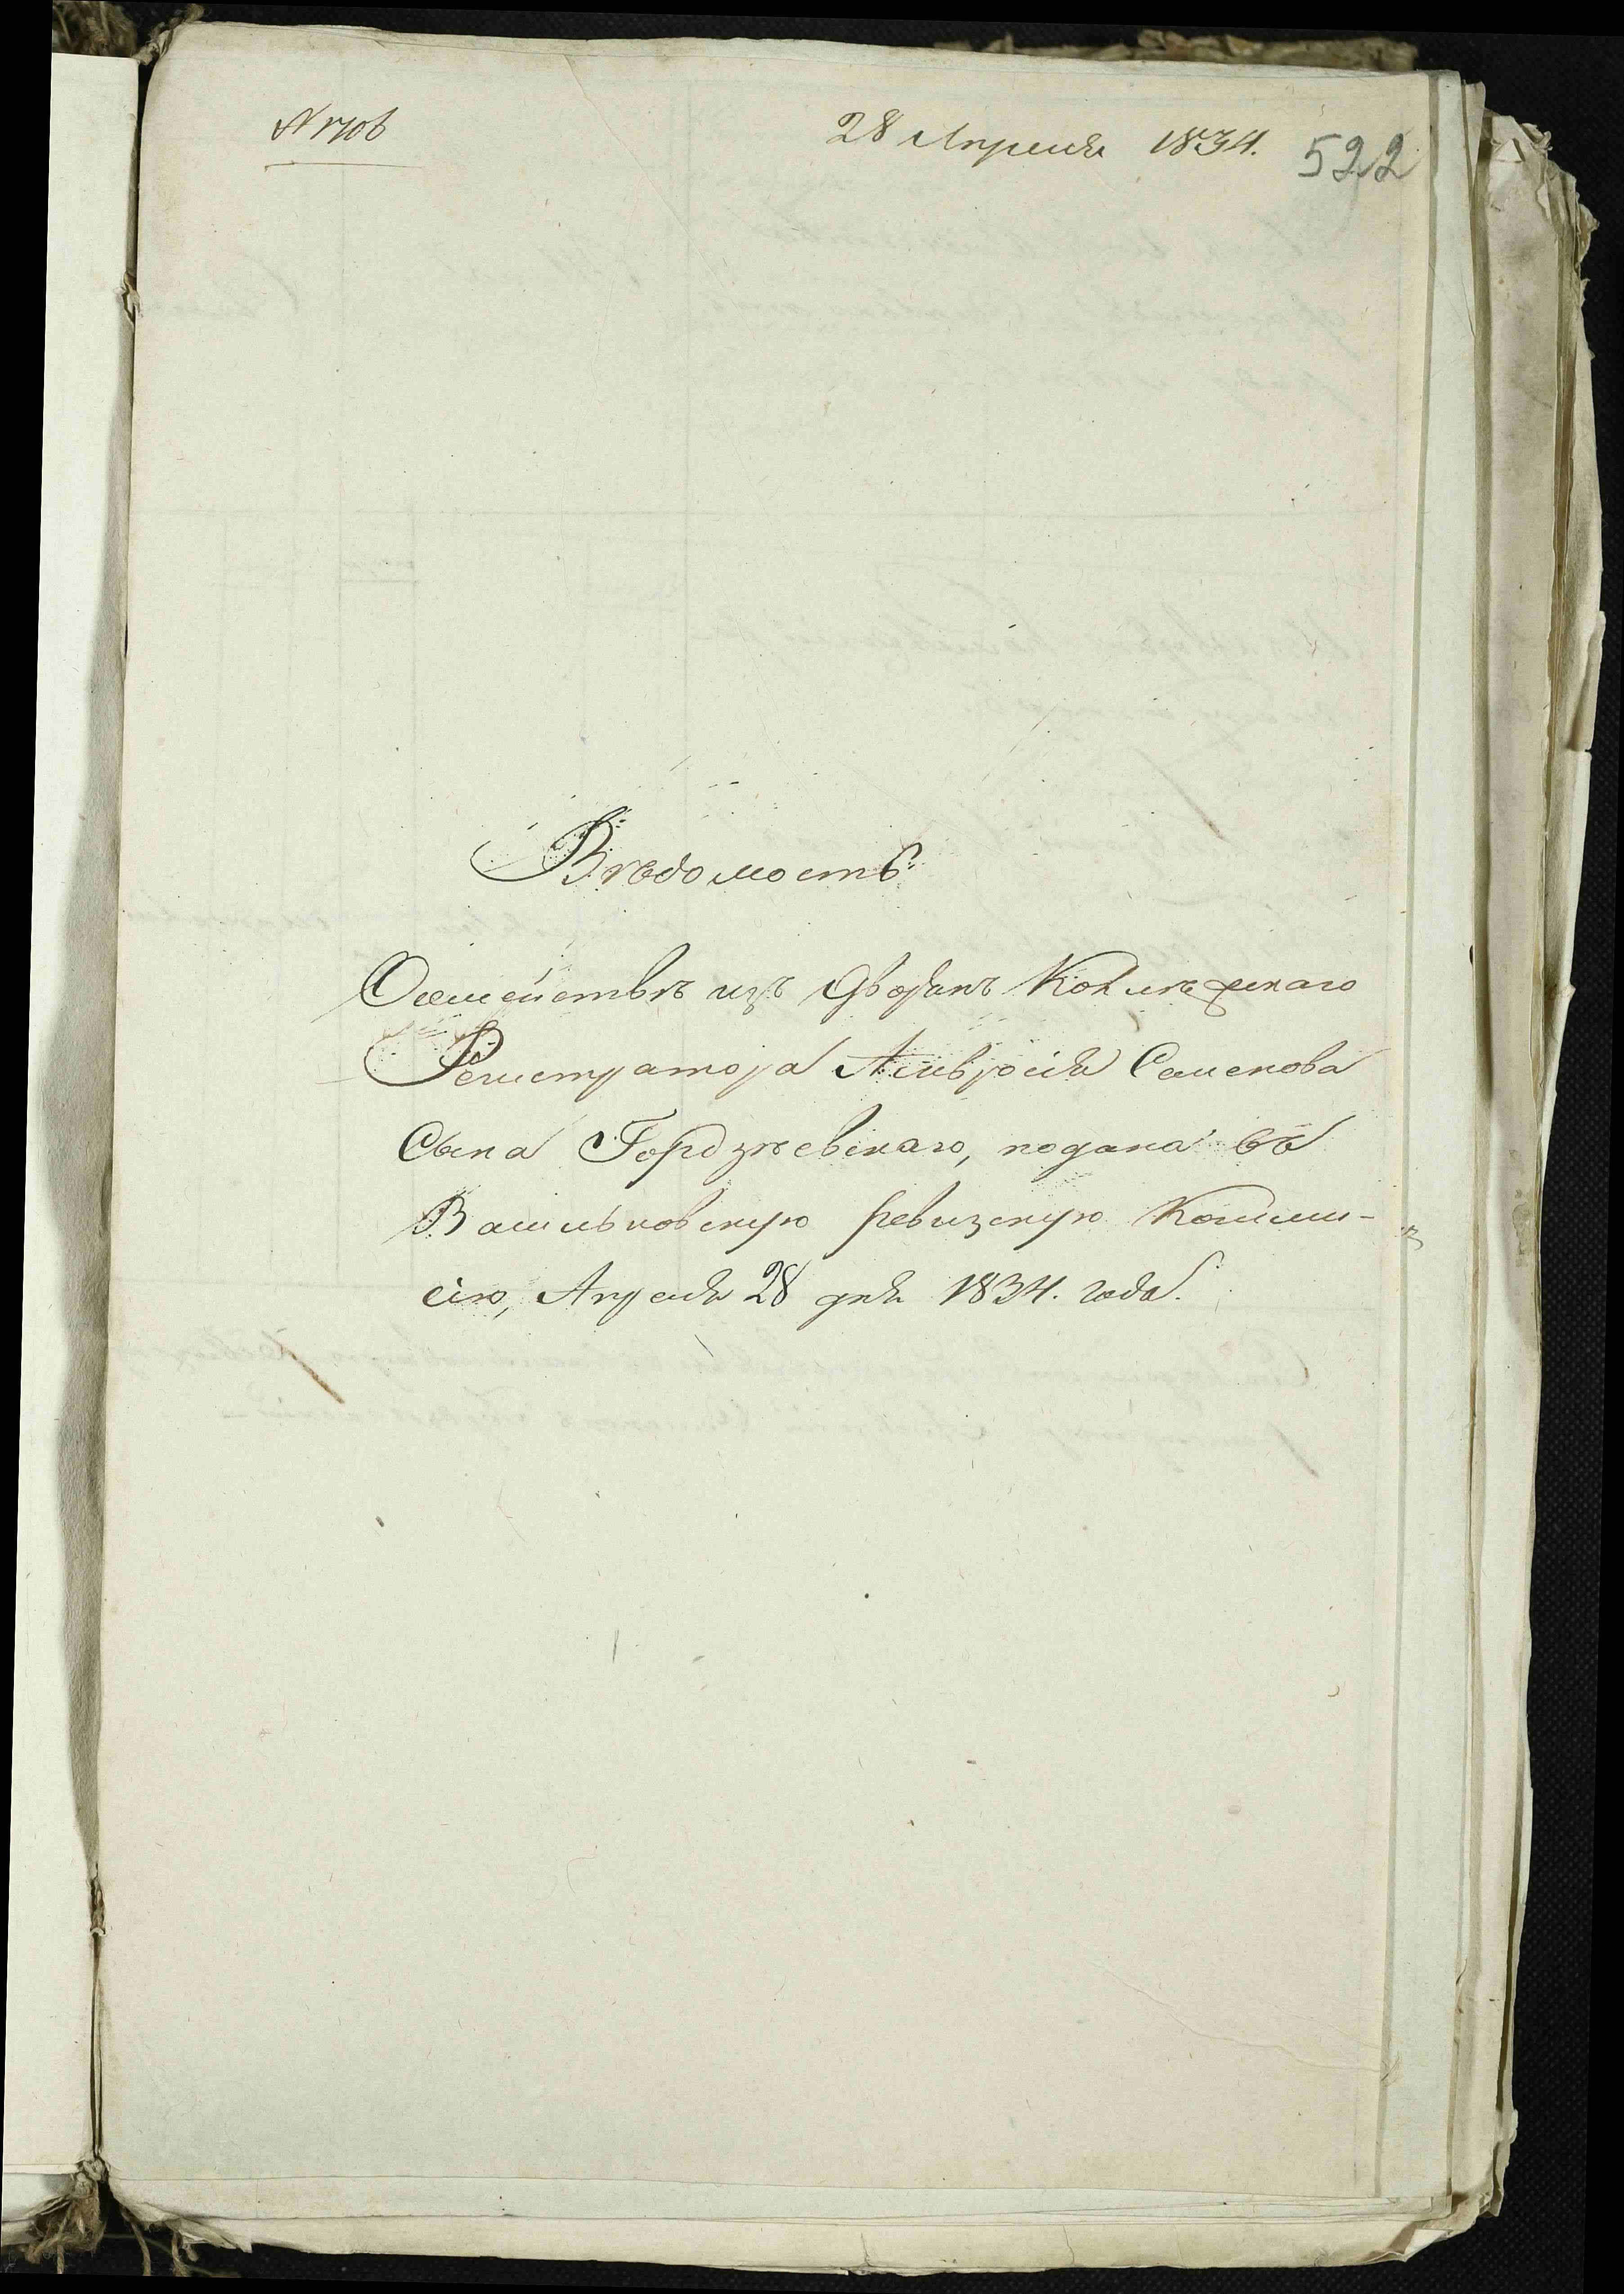 N 1706
28 Апреля 1834.
522
Вѣдомость
О семействѣ изъ Дворянъ Коллежскаго
Регистратора Амвросія Семенова
Сына Гордзѣевскаго, подана въ
Васильковскую ревизскую Комми-
сію, Апреля 28 дня 1834. года.